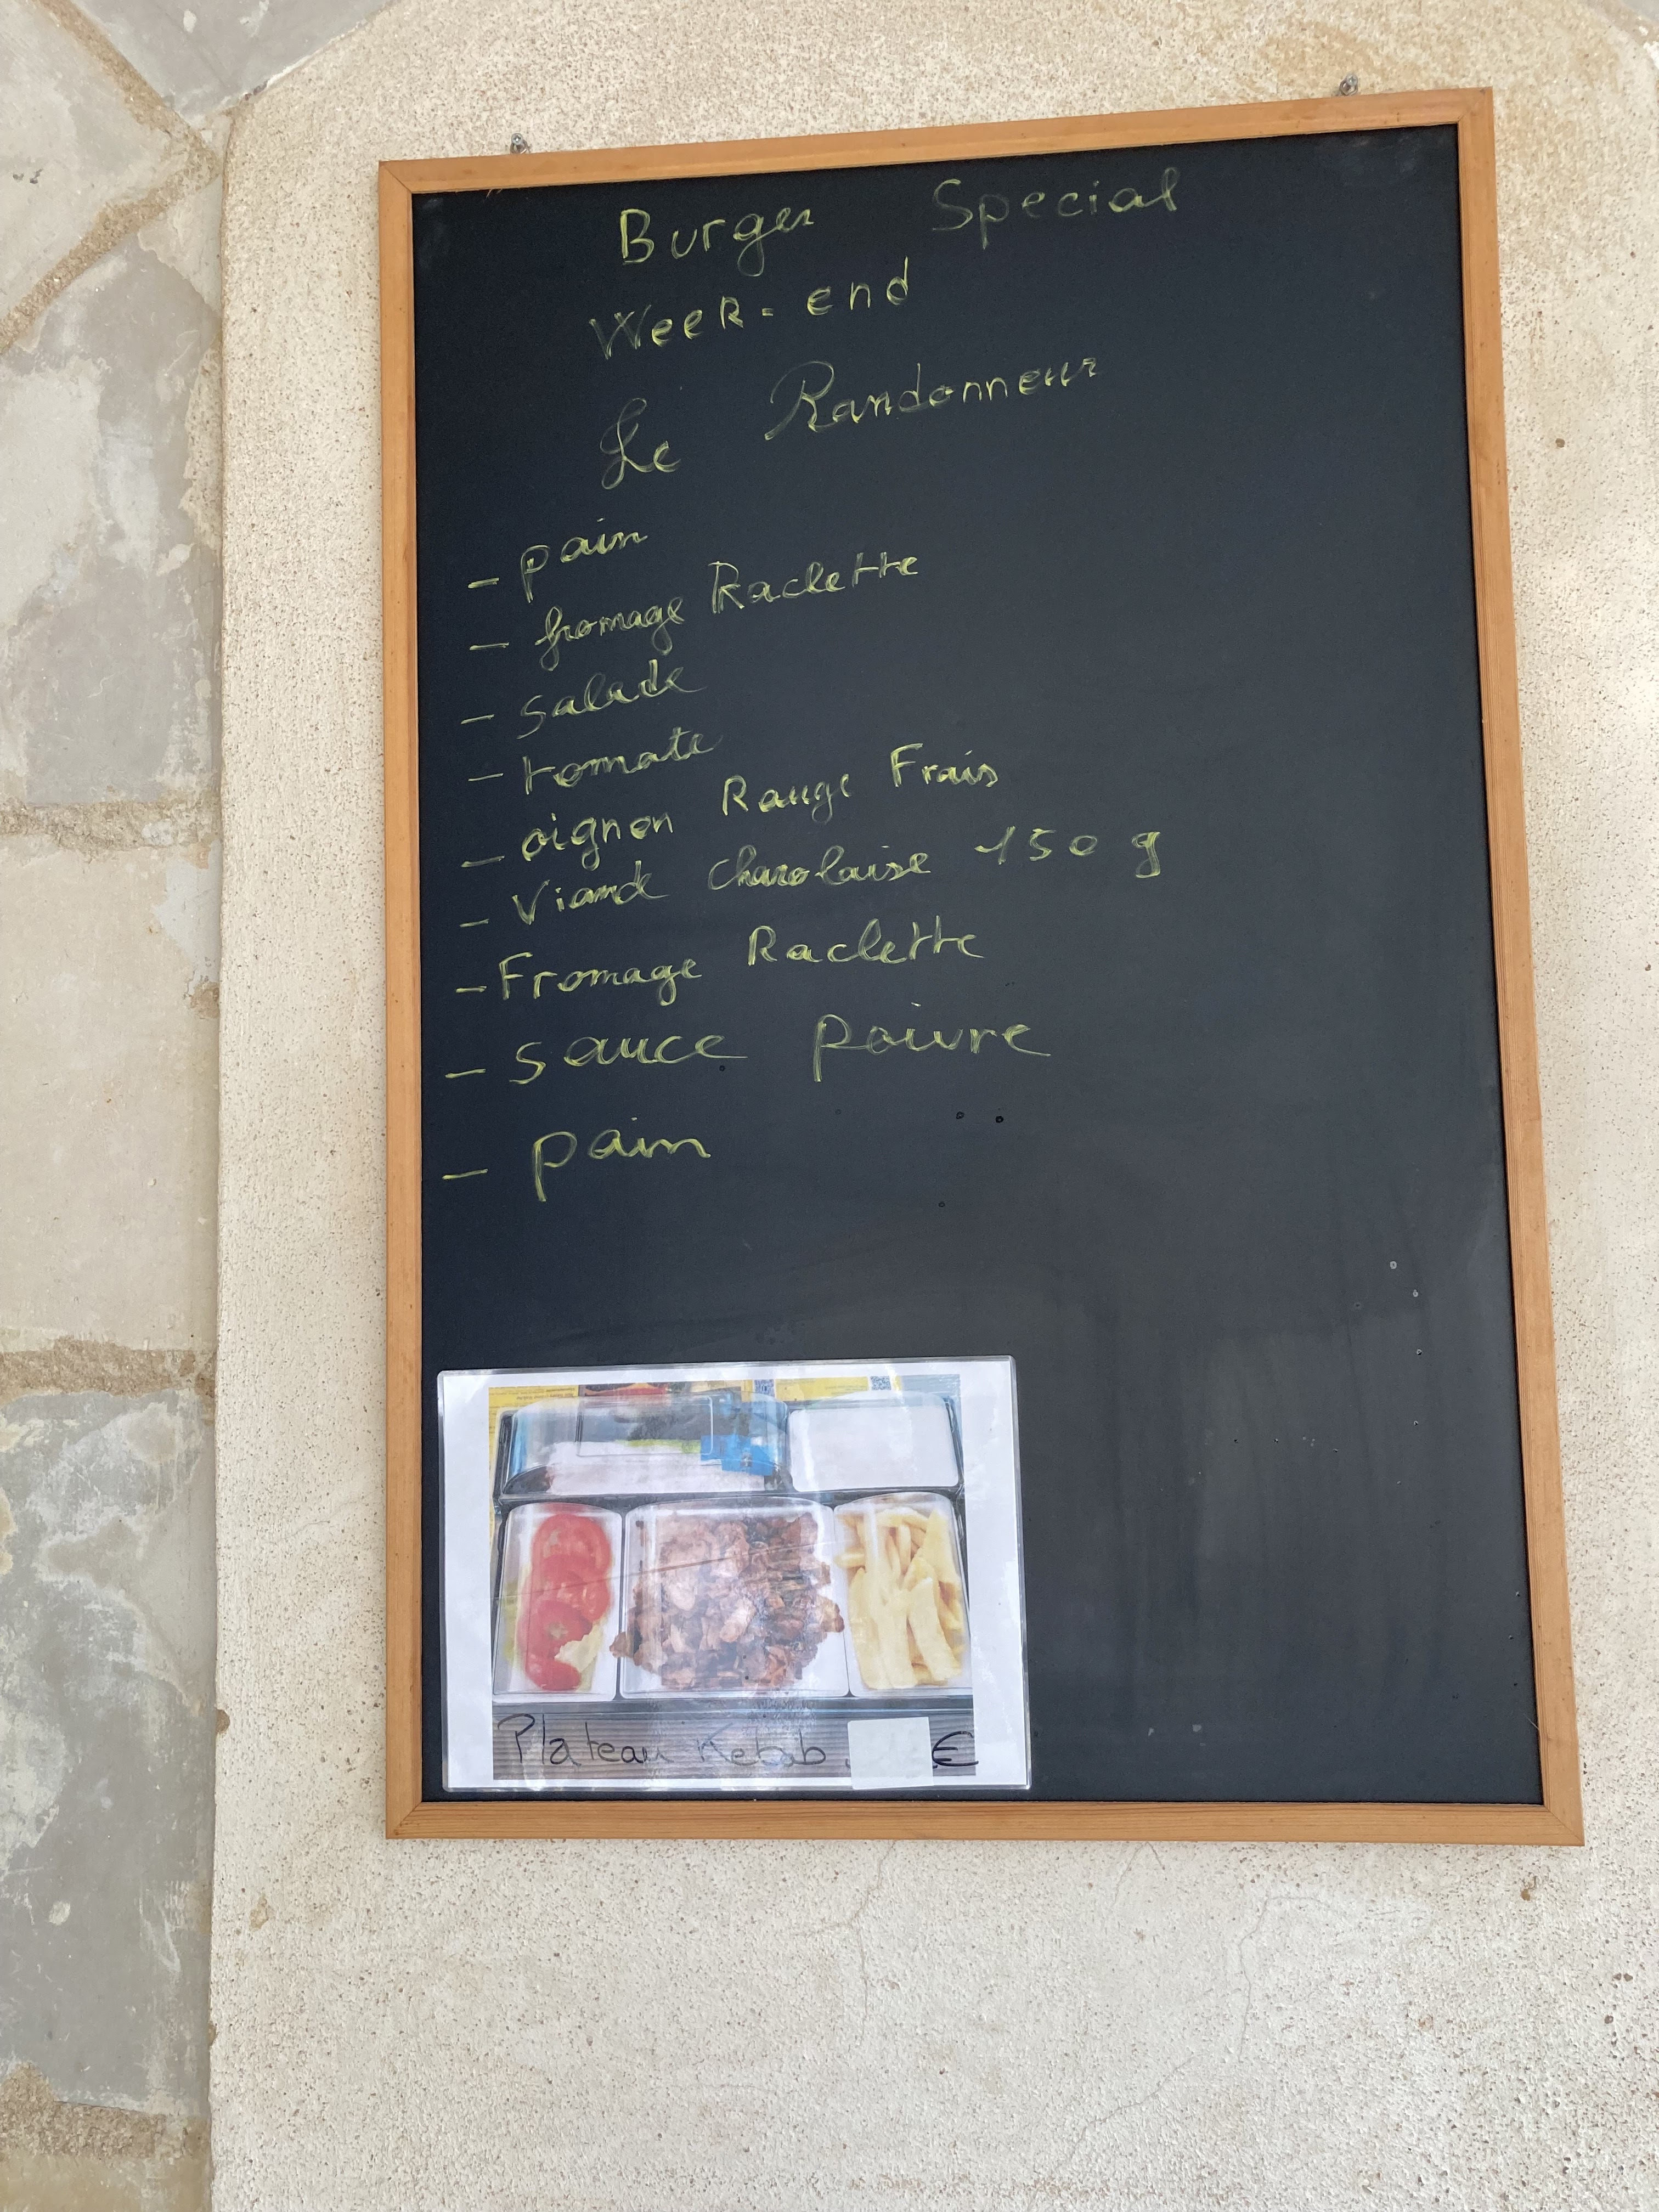 Burger Special
Week-end
Le Randonneur
- pain
- fromage Raclette
- salade
- tomate
- oignon Rouge Frais
- Viande charolaise 150 g
- Fromage Raclette
- sauce poivre
- pain
Plateau Kebab €